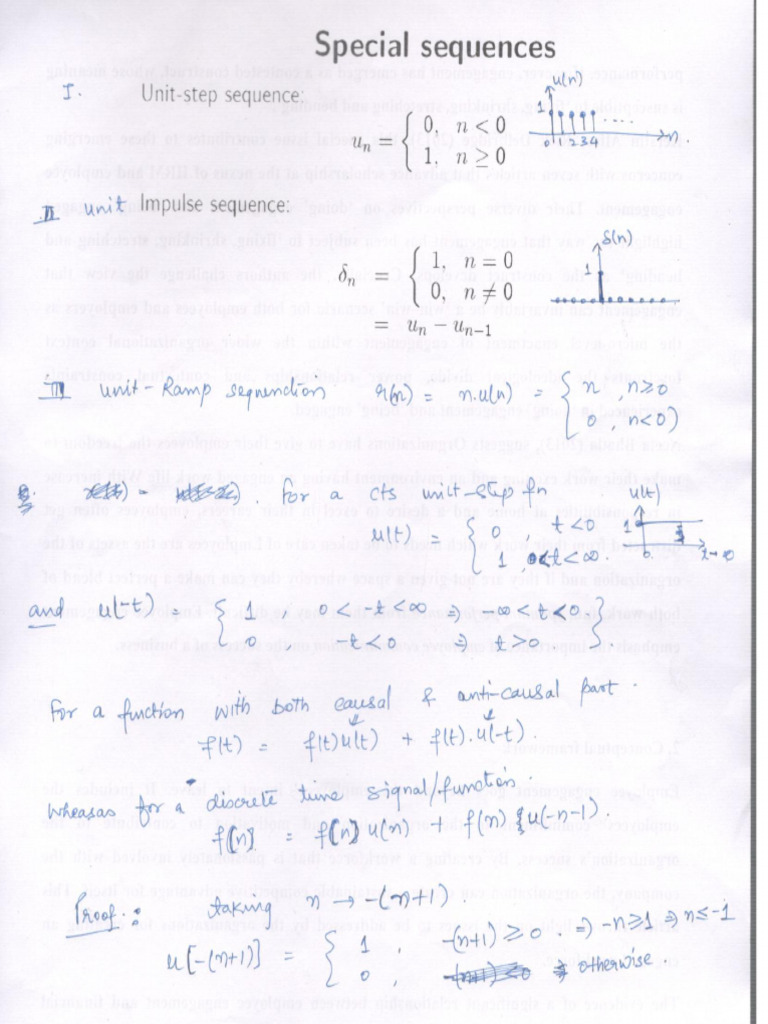 Special sequences
I. Unit-step sequence:
u_n = { 0, n < 0
1, n ≥ 0
u(n)
1
0 1 2 3 4 ...... n
II unit Impulse sequence:
δ(n)
δ_n = { 1, n = 0
0, n ≠ 0
= u_n − u_{n−1}
III unit-Ramp sequnction r(n) = n.u(n) = { n , n≥0
0 , n<0)
for a cts unit-step fn
u(t) = { 0 , t<0
1 , 0<t<∞
u(t)
1
0 t→∞
and u(-t) = { 1 0 < -t < ∞ ⇒ -∞ < t < 0 }
0 , -t < 0 ⇒ t > 0
For a function with both causal & anti-causal part.
f(t) = f(t)u(t) + f(t).u(-t).
whereas for a discrete time signal/function
f(n) = f(n) u(n) + f(n) {u(-n-1)
Proof: taking n → -(n+1)
u[-(n+1)] = { 1 , -(n+1) ≥ 0 ⇒ -n≥1 ⇒ n≤-1
0 , otherwise